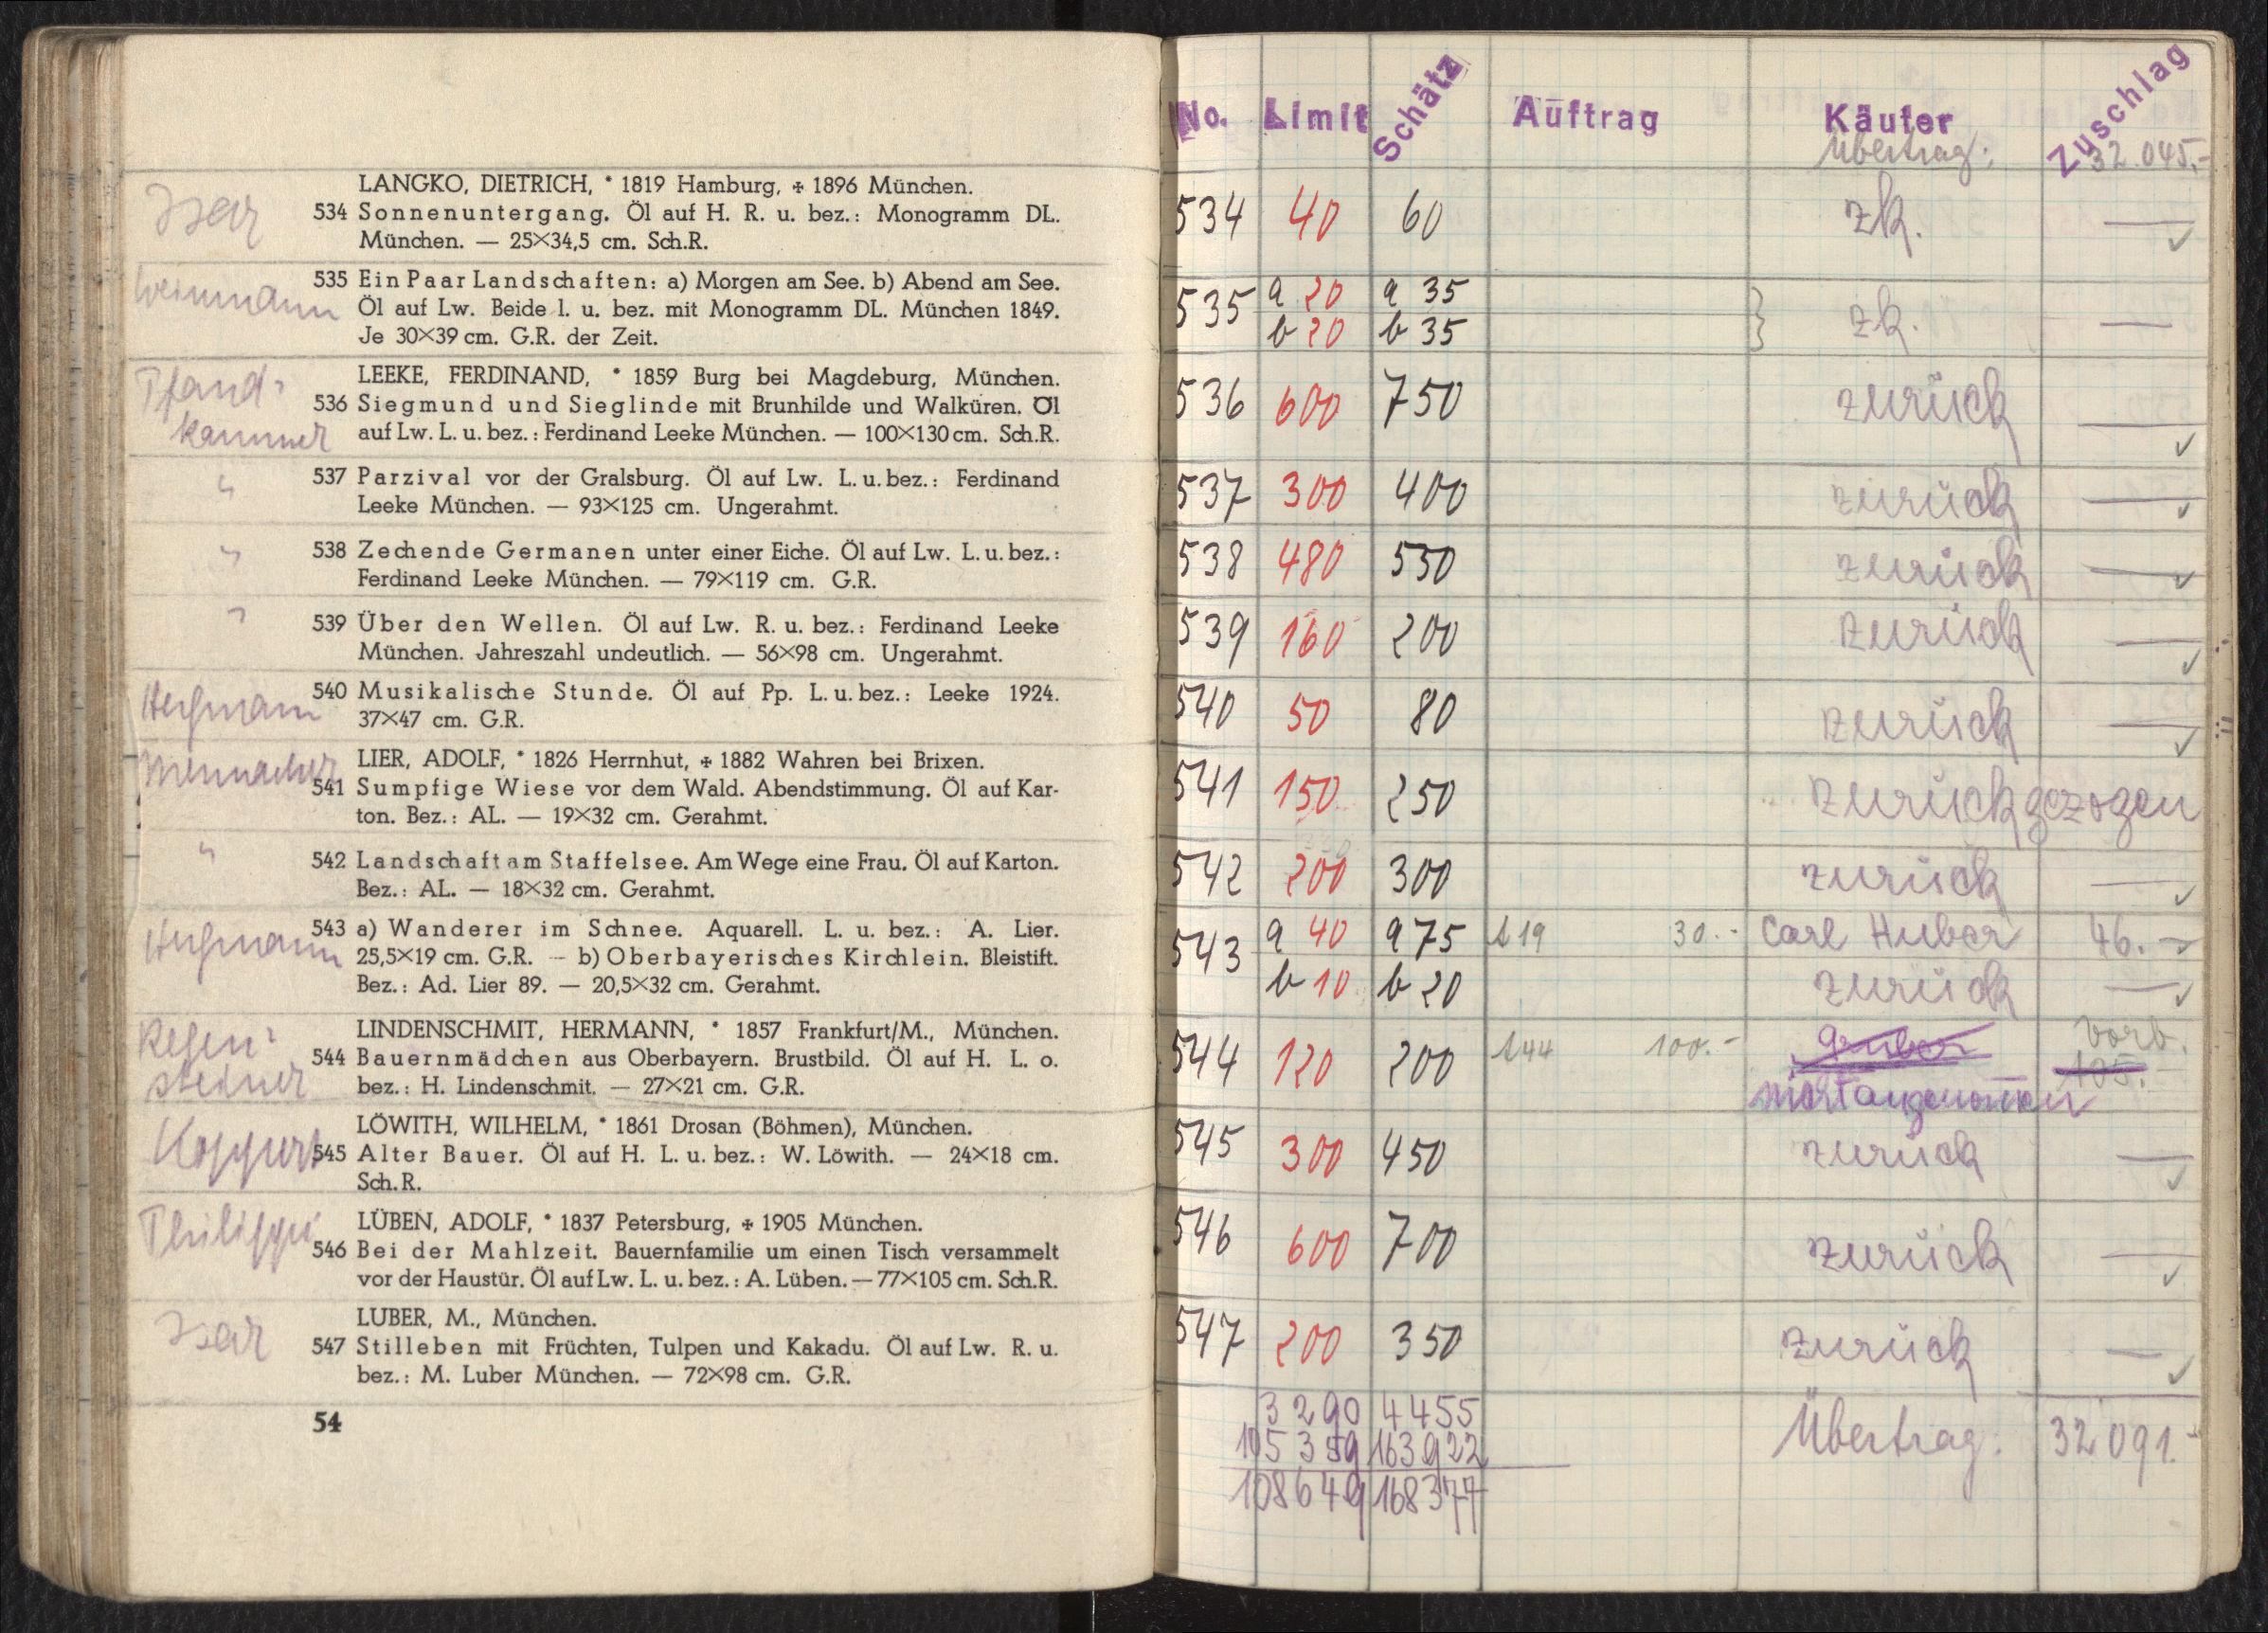 LANGKO, DIETRICH, * 1819 Hamburg, ✢ 1896 München.
Isar
534 Sonnenuntergang. Öl auf H. R. u. bez.: Monogramm DL.
München. — 25×34,5 cm. Sch.R.
Weinmann
535 Ein Paar Landschaften: a) Morgen am See. b) Abend am See.
Öl auf Lw. Beide l. u. bez. mit Monogramm DL. München 1849.
Je 30×39 cm. G.R. der Zeit.
Pfand-
kammer
LEEKE, FERDINAND, * 1859 Burg bei Magdeburg, München.
536 Siegmund und Sieglinde mit Brunhilde und Walküren. Öl
auf Lw. L. u. bez.: Ferdinand Leeke München. — 100×130 cm. Sch.R.
"
537 Parzival vor der Gralsburg. Öl auf Lw. L. u. bez.: Ferdinand
Leeke München. — 93×125 cm. Ungerahmt.
"
538 Zechende Germanen unter einer Eiche. Öl auf Lw. L. u. bez.:
Ferdinand Leeke München. — 79×119 cm. G.R.
"
539 Über den Wellen. Öl auf Lw. R. u. bez.: Ferdinand Leeke
München. Jahreszahl undeutlich. — 56×98 cm. Ungerahmt.
540 Musikalische Stunde. Öl auf Pp. L. u. bez.: Leeke 1924.
37×47 cm. G.R.
LIER, ADOLF, * 1826 Herrnhut, ✢ 1882 Wahren bei Brixen.
541 Sumpfige Wiese vor dem Wald. Abendstimmung. Öl auf Kar-
ton. Bez.: AL. — 19×32 cm. Gerahmt.
"
542 Landschaft am Staffelsee. Am Wege eine Frau. Öl auf Karton.
Bez.: AL. — 18×32 cm. Gerahmt.
543 a) Wanderer im Schnee. Aquarell. L. u. bez.: A. Lier.
25,5×19 cm. G.R. — b) Oberbayerisches Kirchlein. Bleistift.
Bez.: Ad. Lier 89. — 20,5×32 cm. Gerahmt.
Regen-
steiner
LINDENSCHMIT, HERMANN, * 1857 Frankfurt/M., München.
544 Bauernmädchen aus Oberbayern. Brustbild. Öl auf H. L. o.
bez.: H. Lindenschmit. — 27×21 cm. G.R.
LÖWITH, WILHELM, * 1861 Drosan (Böhmen), München.
545 Alter Bauer. Öl auf H. L. u. bez.: W. Löwith. — 24×18 cm.
Sch.R.
Philippi
LÜBEN, ADOLF, * 1837 Petersburg, ✢ 1905 München.
546 Bei der Mahlzeit. Bauernfamilie um einen Tisch versammelt
vor der Haustür. Öl auf Lw. L. u. bez.: A. Lüben. — 77×105 cm. Sch.R.
Isar
LUBER, M., München.
547 Stilleben mit Früchten, Tulpen und Kakadu. Öl auf Lw. R. u.
bez.: M. Luber München. — 72×98 cm. G.R.
54
No. Limit Schätz Auftrag Käufer Zuschlag
Übertrag: 32.045.-
534 40 60 zk. — ✓
535 a 20 a 35 } zk. —
b 20 b 35
536 600 750 zurück — ✓
537 300 400 zurück — ✓
538 480 550 zurück — ✓
539 160 200 zurück — ✓
540 50 80 zurück — ✓
541 150 250 zurückgezogen
542 200 300 zurück — ✓
543 a 40 a 75 19 30.- Carl Huber 46.-
b 10 b 20 zurück — ✓
544 120 200 44 100.- Gruber vorb. 105.-
nicht angenommen
545 300 450 zurück — ✓
546 600 700 zurück — ✓
547 200 350 zurück — ✓
3290 4455
105359 163922 Übertrag: 32091.-
108649 168377